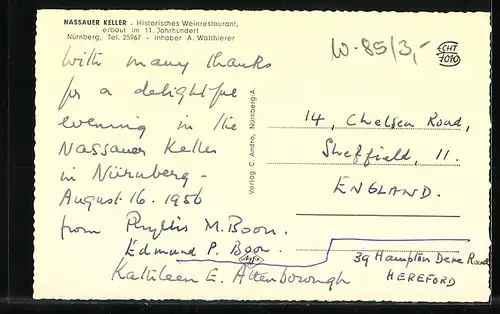 NASSAUER KELLER - Historisches Weinrestaurant,
erbaut im 11. Jahrhundert
Nürnberg, Tel. 25967 - Inhaber A. Walthierer
W-85/3,-
CHT
7010
With many thanks
for a delightful
evening in the
Nassauer Keller
in Nürnberg -
August 16. 1956
from Phyllis M. Boon.
Edmund P. Boon.
Kathleen E. Attenborough
Verlag C. Andro, Nürnberg-A.
14, Chelsea Road,
Sheffield, 11.
ENGLAND.
39 Hampton Dene Road
HEREFORD